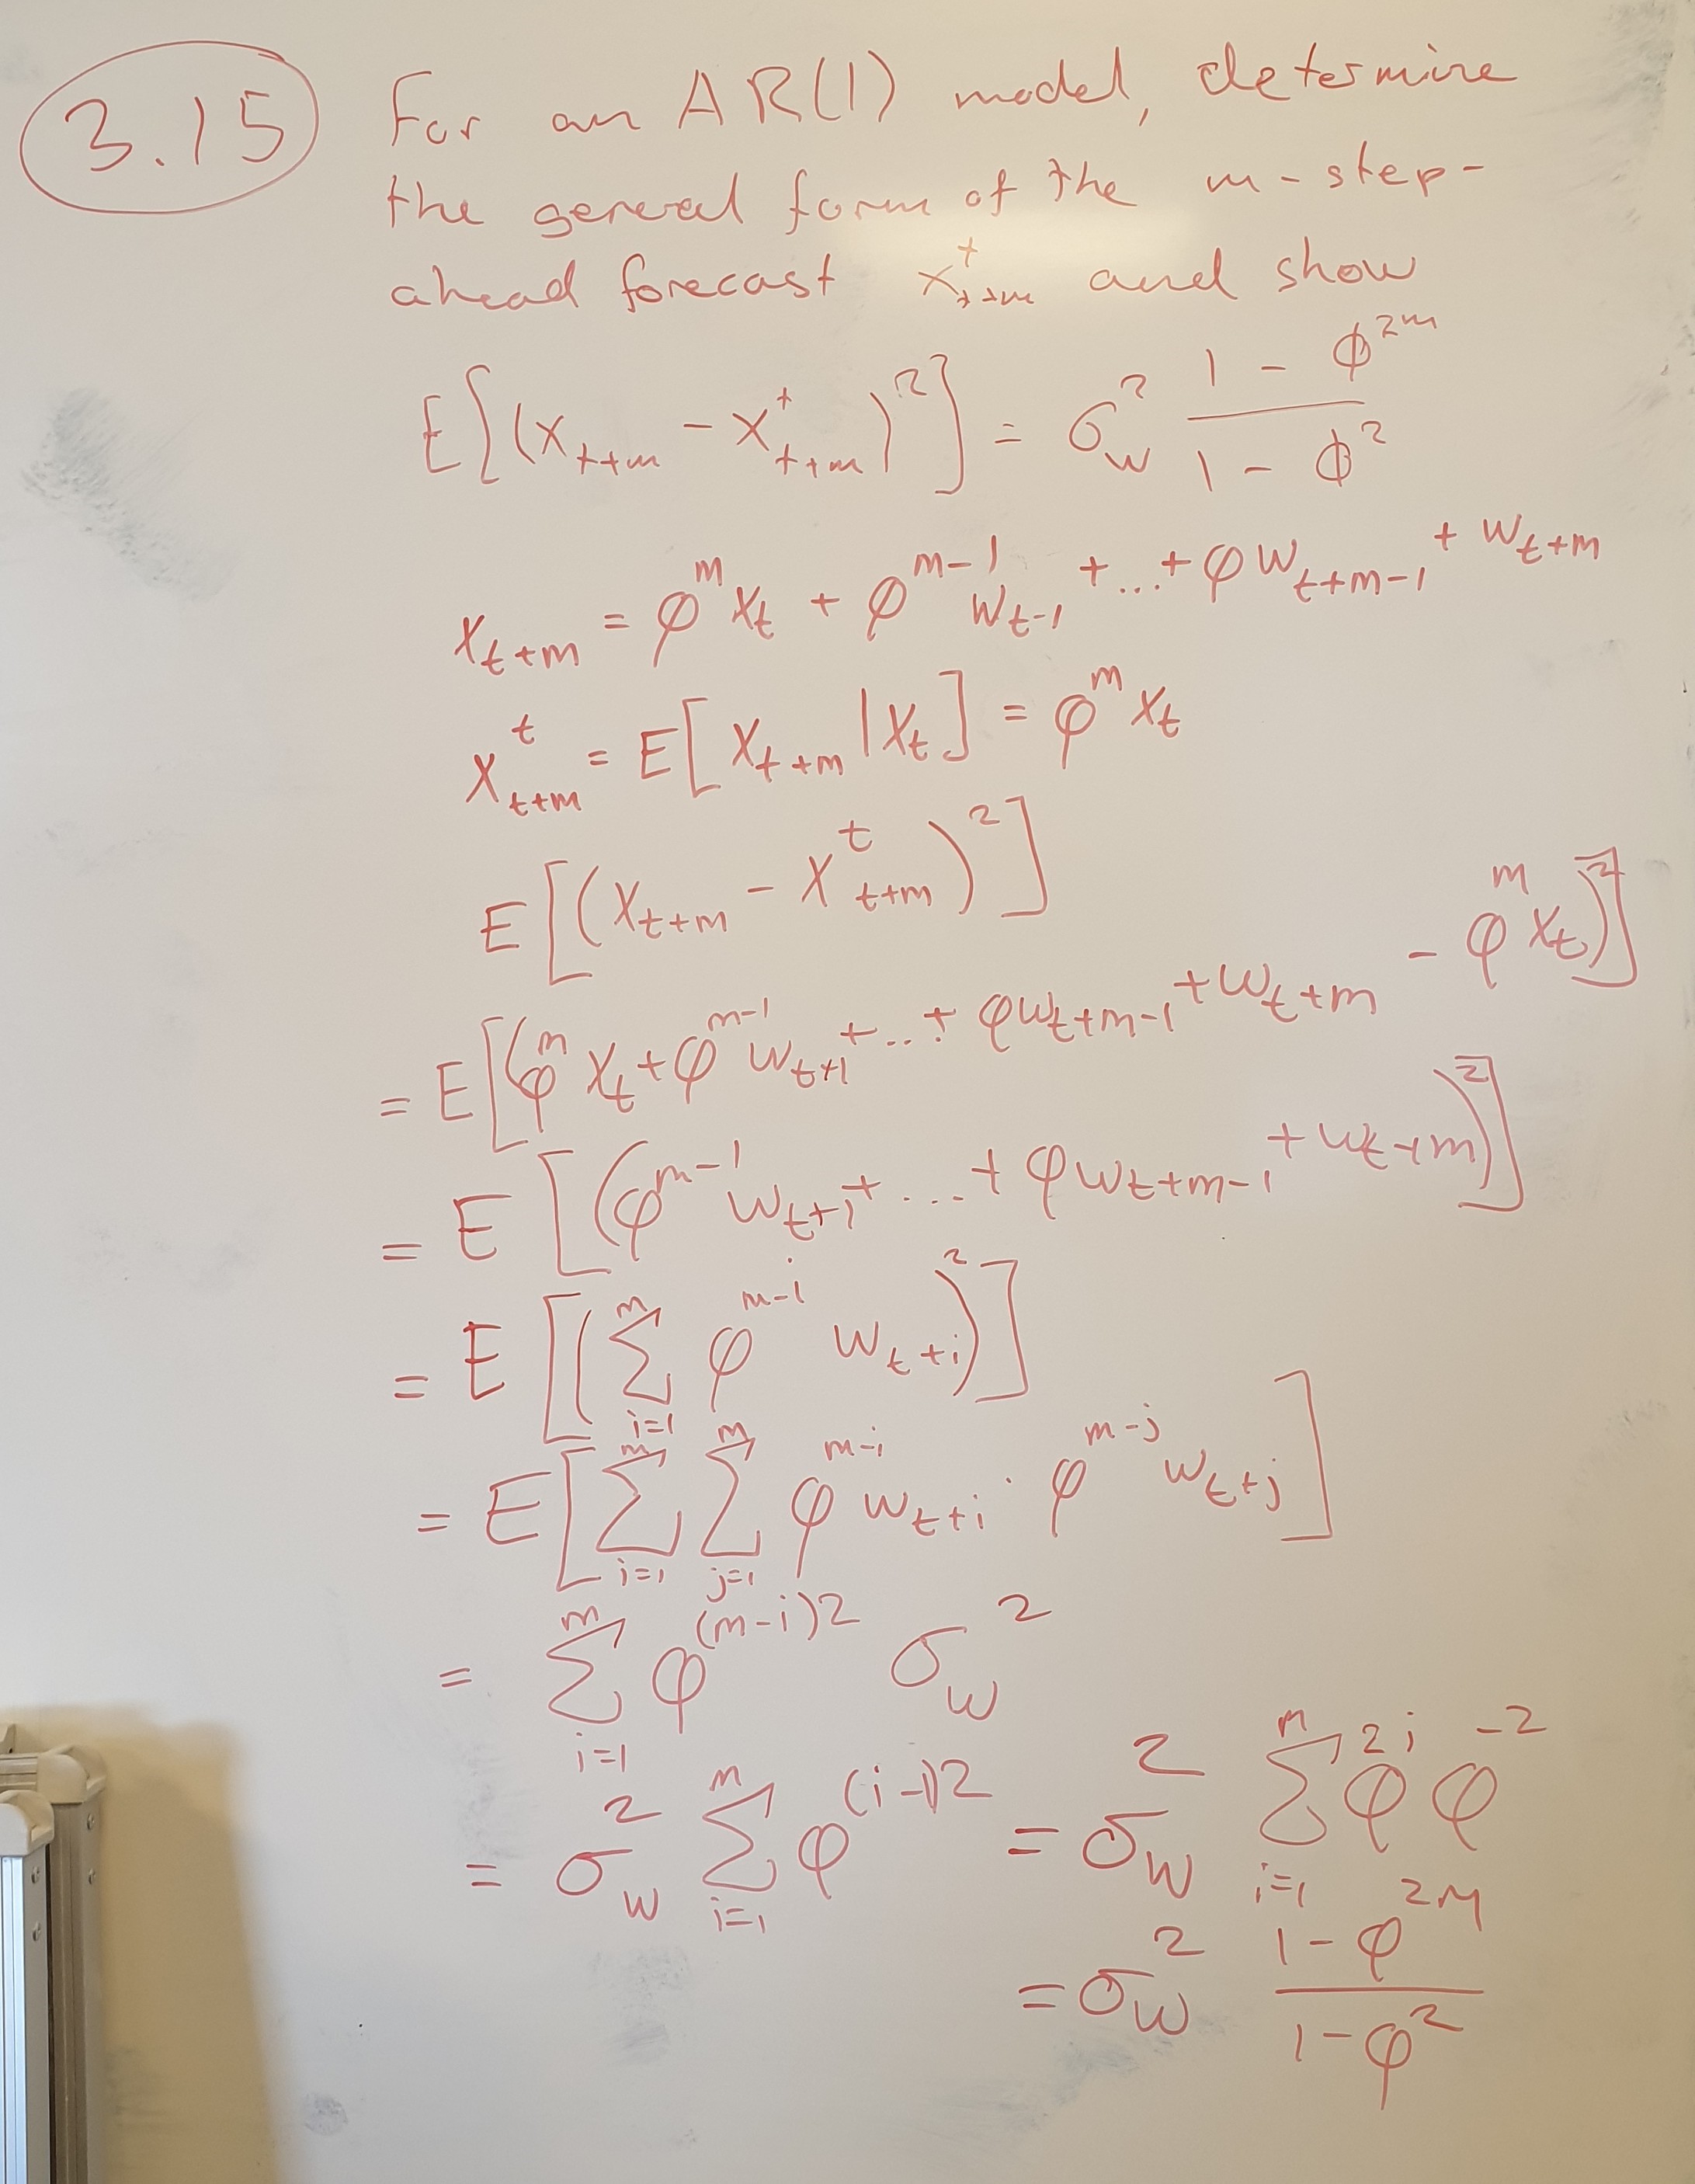 3.15 For an AR(1) model, determine
the general form of the m-step-
ahead forecast x^t_{t+m} and show
E[(x_{t+m} - x^t_{t+m})^2] = σ_w^2 (1 - ϕ^{2m})/(1 - ϕ^2)
x_{t+m} = φ^m x_t + φ^{m-1} w_{t-1} + ... + φ w_{t+m-1} + w_{t+m}
x^t_{t+m} = E[x_{t+m} | x_t] = φ^m x_t
E[(x_{t+m} - x^t_{t+m})^2]
= E[(φ^m x_t + φ^{m-1} w_{t+1} + ... + φ w_{t+m-1} + w_{t+m} - φ^m x_t)^2]
= E[(φ^{m-1} w_{t+1} + .... + φ w_{t+m-1} + w_{t+m})^2]
= E[(∑_{i=1}^m φ^{m-i} w_{t+i})^2]
= E[∑_{i=1}^m ∑_{j=1}^m φ^{m-i} w_{t+i} · φ^{m-j} w_{t+j}]
= ∑_{i=1}^m φ^{(m-i)2} σ_w^2
= σ_w^2 ∑_{i=1}^m φ^{(i-1)2} = σ_w^2 ∑_{i=1}^m φ^{2i} φ^{-2}
= σ_w^2 (1 - φ^{2M})/(1 - φ^2)